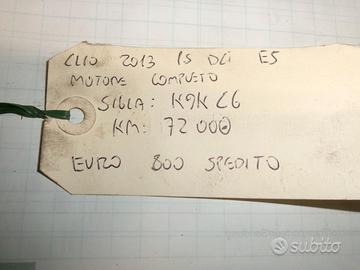 CLIO 2013 1S DCi E5
MOTORE COMPLETO
SIGLA: K9K C6
KM: 72000
EURO 800 SPEDITO
subito